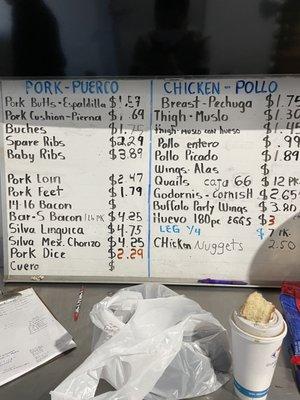 PORK-PUERCO
Pork Butts-Espaldilla $1.57
Pork Cushion-Pierna $1.69
Buches $1.75
Spare Ribs $2.29
Baby Ribs $3.89
Pork Loin $2.47
Pork Feet $1.79
14-16 Bacon $
Bar-S Bacon $4.25
Silva Linguica $4.75
Silva Mex. Chorizo $4.25
Pork Dice $2.29
Cuero $
CHICKEN-POLLO
Breast-Pechuga $1.75
Thigh-Muslo $1.30
Thigh-Muslo con hueso
Pollo entero $.99
Pollo Picado $1.89
Wings-Alas $
Quails caja 66 $12 PK
Godornis-CORNISH $2.65
Buffalo Party Wings $3.80
Huevo 180pc EGGS $3
LEG 1/4 $
CHicken Nuggets 2.50